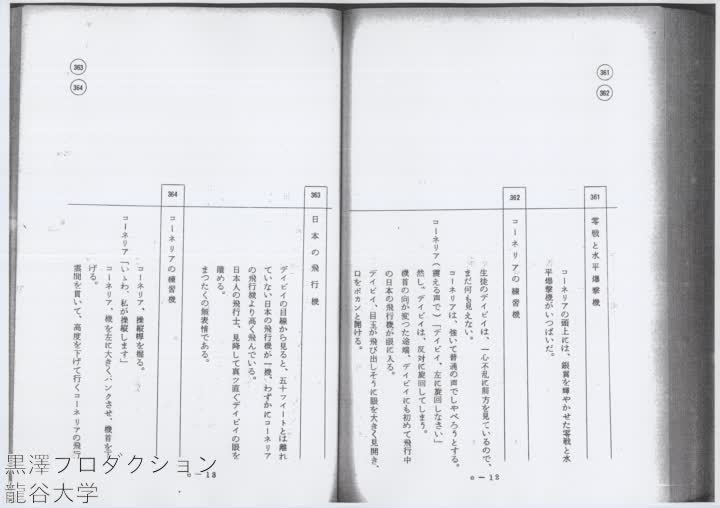 361
362
361
零戦と水平爆撃機
コーネリアの頭上には、銀翼を輝やかせた零戦と水
平爆撃機がいつぱいだ。
362
コーネリアの練習機
生徒のデイビイは、一心不乱に前方を見ているので、
まだ何も見えない。
コーネリアは、強いて普通の声でしやべろうとする。
コーネリア(震える声で)「デイビイ、左に旋回しなさい」
然し、デイビイは、反対に旋回してしまう。
機首の向が変つた途端、デイビイにも初めて飛行中
の日本の飛行機が眼に入る。
デイビイ、目玉が飛び出しそうに眼を大きく見開き、
口をポカンと開ける。
e—12
363
364
363
日本の飛行機
デイビイの目線から見ると、五十フイートとは離れ
ていない日本の飛行機が一機、わずかにコーネリア
の飛行機より高く飛んでいる。
日本人の飛行士、見降して真ツ直ぐデイビイの眼を
瞶める。
まつたくの無表情である。
364
コーネリアの練習機
コーネリア、操縦桿を握る。
コーネリア「いゝわ、私が操縦します」
コーネリア、機を左に大きくバンクさせ、機首を下
げる。
雲間を貫いて、高度を下げて行くコーネリアの飛行
e—13
黒澤プロダクション
龍谷大学